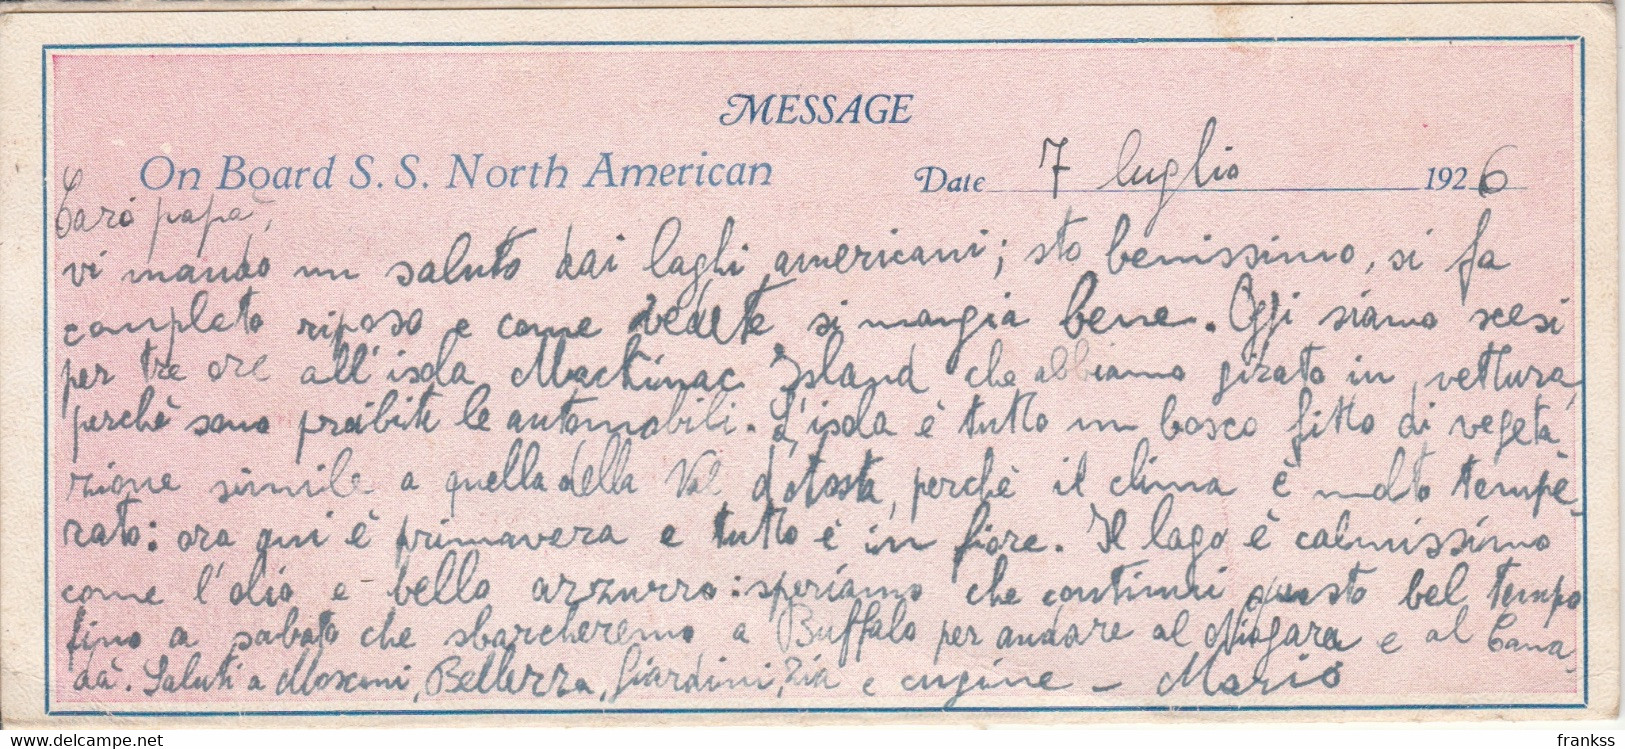 MESSAGE
On Board S. S. North American Date 7 luglio 1926
Caro papà,
vi mando un saluto dai laghi americani; sto benissimo, si fa
completo riposo e come vedete si mangia bene. Oggi siamo scesi
per tre ore all'isola Machinac Island che abbiamo girato in vettura,
perchè sono proibite le automobili. L'isola è tutto un bosco fitto di vegeta
zione simile a quella della Val d'Aosta, perchè il clima è molto tempe-
rato: ora qui è primavera e tutto è in fiore. Il lago è calmissimo
come l'olio e bello azzurro: speriamo che continui questo bel tempo
fino a sabato che sbarcheremo a Buffalo per andare al Niagara e al Cana-
dà. Saluti a Mosconi, Bellezza, Giardini, zia e cugine – Mario
frankss
delcampe.net